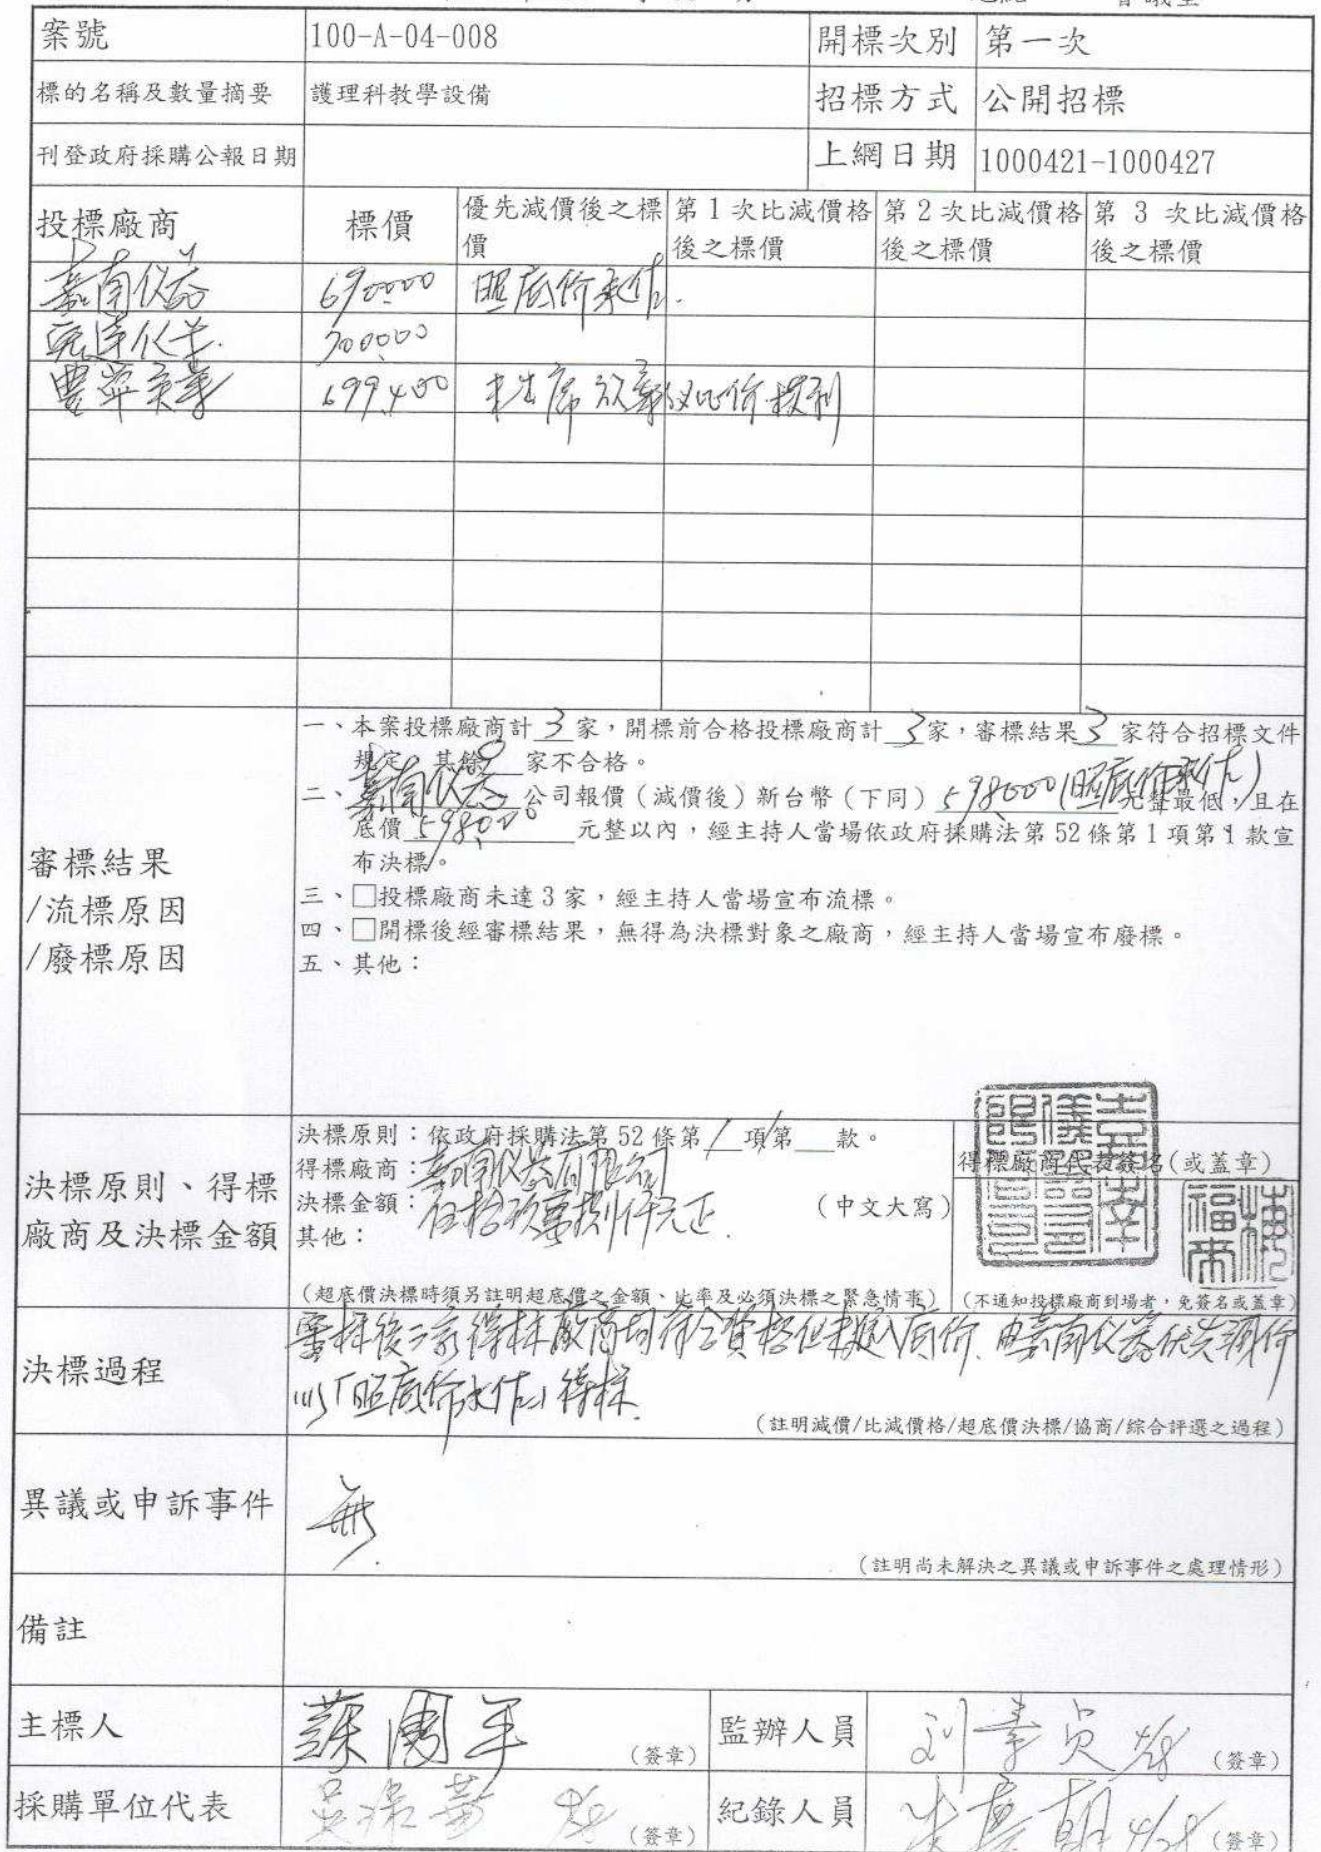 會議室
案號 100-A-04-008 開標次別 第一次
標的名稱及數量摘要 護理科教學設備 招標方式 公開招標
刊登政府採購公報日期 上網日期 1000421-1000427
投標廠商 標價 優先減價後之標價 第1次比減價格後之標價 第2次比減價格後之標價 第 3 次比減價格後之標價
嘉南仪器 690000 照底价承佔.
300000
699,400 未出席 放棄 比价 权利
一、本案投標廠商計 3 家,開標前合格投標廠商計 3 家,審標結果 3 家符合招標文件
規定,其餘 0 家不合格。
二、嘉南仪器 公司報價(減價後)新台幣(下同) 598000(照底价承佔) 元整最低,且在
底價 598000 元整以內,經主持人當場依政府採購法第 52 條第 1 項第 1 款宣
布決標。
審標結果
/流標原因
/廢標原因
三、□投標廠商未達 3 家,經主持人當場宣布流標。
四、□開標後經審標結果,無得為決標對象之廠商,經主持人當場宣布廢標。
五、其他:
決標原則、得標
廠商及決標金額
決標原則:依政府採購法第 52 條第 1 項第 款。
得標廠商:嘉南仪器有限公司
決標金額:伍拾玖萬捌仟元正. (中文大寫)
其他:
(超底價決標時須另註明超底價之金額、比率及必須決標之緊急情事)
得標廠商代表簽名(或蓋章)
(不通知投標廠商到場者,免簽名或蓋章)
決標過程
審标後三家得标廠商均符合資格但未進入底价. 由嘉南仪器优先減价
以「照底价承佔」得标.
(註明減價/比減價格/超底價決標/協商/綜合評選之過程)
異議或申訴事件 無.
(註明尚未解決之異議或申訴事件之處理情形)
備註
主標人 (簽章) 監辦人員 (簽章)
採購單位代表 (簽章) 紀錄人員 4/28 (簽章)